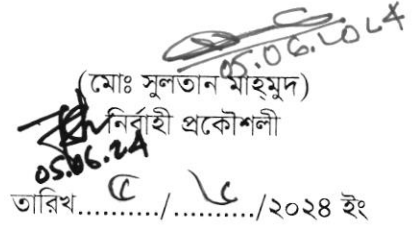 05.06.2024
(মোঃ সুলতান মাহমুদ)
নির্বাহী প্রকৌশলী
05.06.24
তারিখ.........../.........../২০২৪ ইং